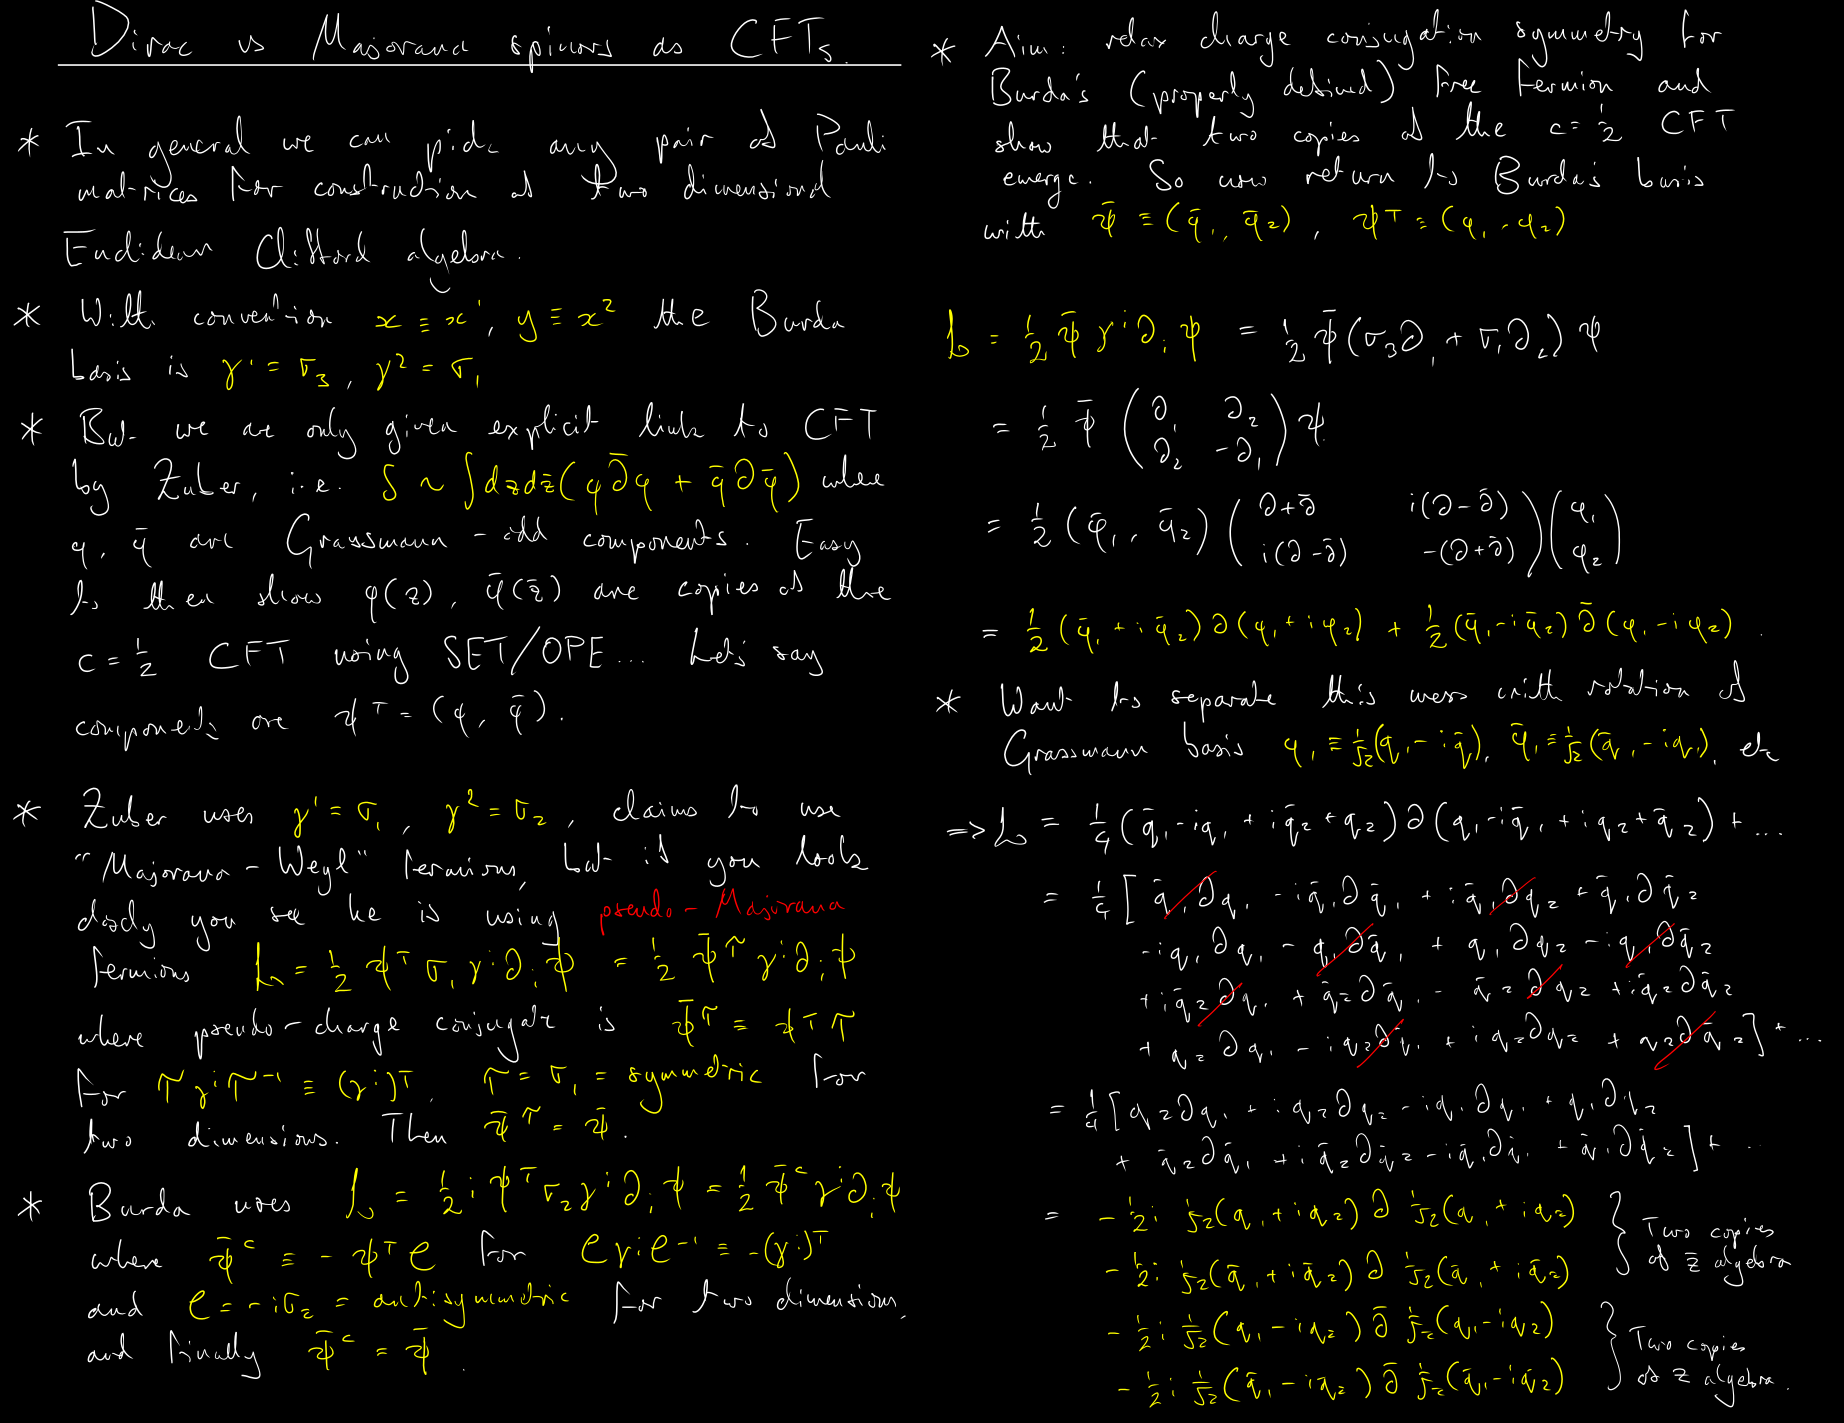 Dirac vs Majorana spinors as CFTs.
* In general we can pick any pair of Pauli
matrices for construction of two dimensional
Euclidean Clifford algebra.
* With convention x ≡ x¹, y ≡ x² the Burda
basis is γ¹ = σ₃, γ² = σ₁
* But we are only given explicit link to CFT
by Zuber, i.e. S ~ ∫dzdz̄(φ∂̄φ + φ̄∂φ̄) where
φ, φ̄ are Grassmann-odd components. Easy
to then show φ(z), φ̄(z̄) are copies of the
c = ½ CFT using SET/OPE... Let's say
components are ψᵀ = (φ, φ̄).
* Zuber uses γ¹ = σ₁, γ² = σ₂, claims to use
"Majorana-Weyl" fermions, but if you look
closely you see he is using pseudo-Majorana
fermions L = ½ ψᵀσ₁γⁱ∂ᵢψ = ½ ψ̄^π γⁱ∂ᵢψ
where pseudo-charge conjugate is ψ̄^π ≡ ψᵀπ
for πγⁱπ⁻¹ ≡ (γⁱ)ᵀ. π = σ₁ = symmetric for
two dimensions. Then ψ̄^π = ψ̄.
* Burda uses L = ½ i ψᵀσ₂γⁱ∂ᵢψ = ½ ψ̄ᶜγⁱ∂ᵢψ
where ψ̄ᶜ ≡ -ψᵀC for CγⁱC⁻¹ ≡ -(γⁱ)ᵀ
and C = -iσ₂ = antisymmetric for two dimensions,
and finally ψ̄ᶜ = ψ̄.
* Aim: relax charge conjugation symmetry for
Burda's (properly defined) free fermion and
show that two copies of the c = ½ CFT
emerge. So now return to Burda's basis
with ψ̄ ≡ (φ̄₁, φ̄₂), ψᵀ ≡ (φ₁, φ₂)
L = ½ ψ̄γⁱ∂ᵢψ = ½ ψ̄(σ₃∂₁ + σ₁∂₂)ψ
= ½ ψ̄ (∂₁ ∂₂
∂₂ -∂₁) ψ
= ½ (φ̄₁, φ̄₂) (∂+∂̄ i(∂-∂̄)
i(∂-∂̄) -(∂+∂̄)) (φ₁
φ₂)
= ½ (φ̄₁ + iφ̄₂)∂(φ₁ + iφ₂) + ½ (φ̄₁ - iφ̄₂)∂̄(φ₁ - iφ₂).
* Want to separate this mess with rotation of
Grassmann basis φ₁ ≡ 1/√2(q₁ - iq̄₁), φ̄₁ ≡ 1/√2(q̄₁ - iq₁), etc
=> L = ¼(q̄₁ - iq₁ + iq̄₂ + q₂)∂(q₁ - iq̄₁ + iq₂ + q̄₂) + ...
= ¼[q̄₁∂q₁ - iq̄₁∂q̄₁ + iq̄₁∂q₂ + q̄₁∂q̄₂
- iq₁∂q₁ - q₁∂q̄₁ + q₁∂q₂ - iq₁∂q̄₂
+ iq̄₂∂q₁ + q̄₂∂q̄₁ - q̄₂∂q₂ + iq̄₂∂q̄₂
+ q₂∂q₁ - iq₂∂q̄₁ + iq₂∂q₂ + q₂∂q̄₂] + ...
= ¼[q₂∂q₁ + iq₂∂q₂ - iq₁∂q₁ + q₁∂q₂
+ q̄₂∂q̄₁ + iq̄₂∂q̄₂ - iq̄₁∂q̄₁ + q̄₁∂q̄₂] + ...
= -½i 1/√2(q₁ + iq₂)∂ 1/√2(q₁ + iq₂)
-½i 1/√2(q̄₁ + iq̄₂)∂ 1/√2(q̄₁ + iq̄₂)
Two copies
of z̄ algebra
-½i 1/√2(q₁ - iq₂)∂̄ 1/√2(q₁ - iq₂)
-½i 1/√2(q̄₁ - iq̄₂)∂̄ 1/√2(q̄₁ - iq̄₂)
Two copies
of z algebra.